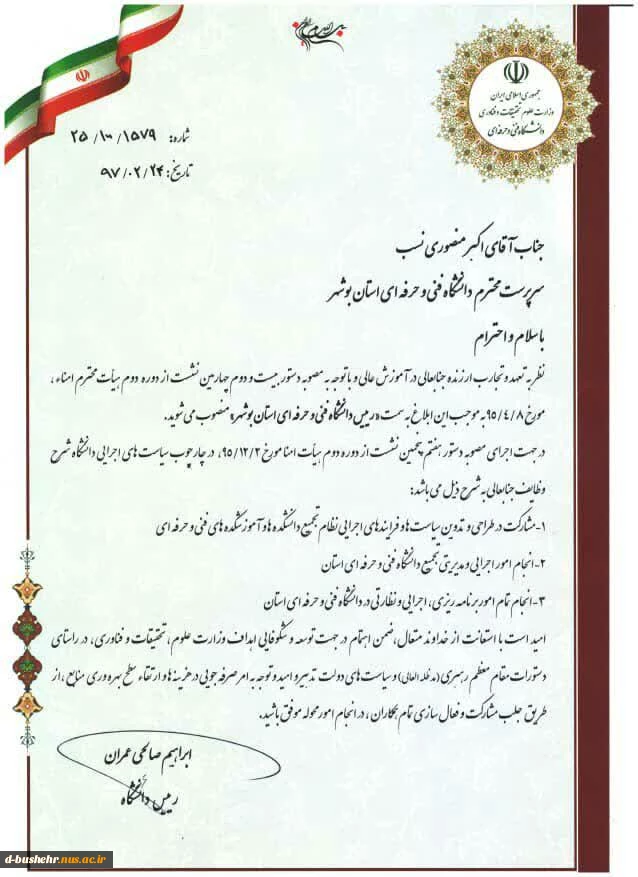 جمهوری اسلامی ایران
وزارت علوم تحقیقات و فناوری
دانشگاه فنی و حرفه‌ای
شماره: ۲۵/۱۰۰/۱۵۷۹
تاریخ: ۹۷/۰۲/۲۴
جناب آقای اکبر منصوری نسب
سرپرست محترم دانشگاه فنی و حرفه ای استان بوشهر
با سلام و احترام
نظر به تعهد و تجارب ارزنده جنابعالی در آموزش عالی و با توجه به مصوبه دستور بیست و دوم چهارمین نشست از دوره دوم هیأت محترم امناء ،
مورخ ۹۵/۴/۸ به موجب این ابلاغ به سمت «رییس دانشگاه فنی و حرفه ای استان بوشهر» منصوب می شوید.
در جهت اجرای مصوبه دستور هفتم پنجمین نشست از دوره دوم هیأت امنا مورخ ۹۵/۱۲/۲، در چارچوب سیاست های اجرایی دانشگاه شرح
وظایف جنابعالی به شرح ذیل می باشد:
۱- مشارکت در طراحی و تدوین سیاست ها و فرایندهای اجرایی نظام تجمیع دانشکده ها و آموزشکده های فنی و حرفه ای
۲- انجام امور اجرایی و مدیریتی تجمیع دانشگاه فنی و حرفه ای استان
۳- انجام تمام امور برنامه ریزی، اجرایی و نظارتی در دانشگاه فنی و حرفه ای استان
امید است با استعانت از خداوند متعال، ضمن اهتمام در جهت توسعه و شکوفایی اهداف وزارت علوم، تحقیقات و فناوری، در راستای
دستورات مقام معظم رهبری (مدظله العالی) و سیاست های دولت تدبیر و امید و توجه به امر صرفه جویی در هزینه ها و ارتقاء سطح بهره وری منابع ، از
طریق جلب مشارکت و فعال سازی تمام همکاران، در انجام امور محوله موفق باشید.
ابراهیم صالحی عمران
رییس دانشگاه
d-bushehr.nus.ac.ir